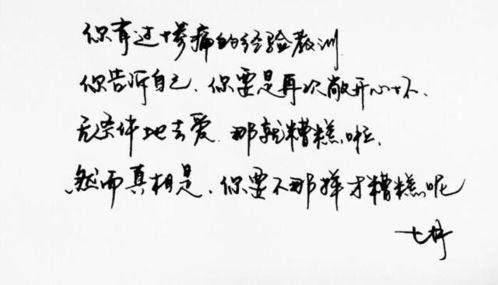 你有过惨痛的经验教训
你告诉自己、你要是再次敞开心怀、
无条件地去爱 那就糟糕啦、
然而真相是、你要不那样才糟糕呢
七井